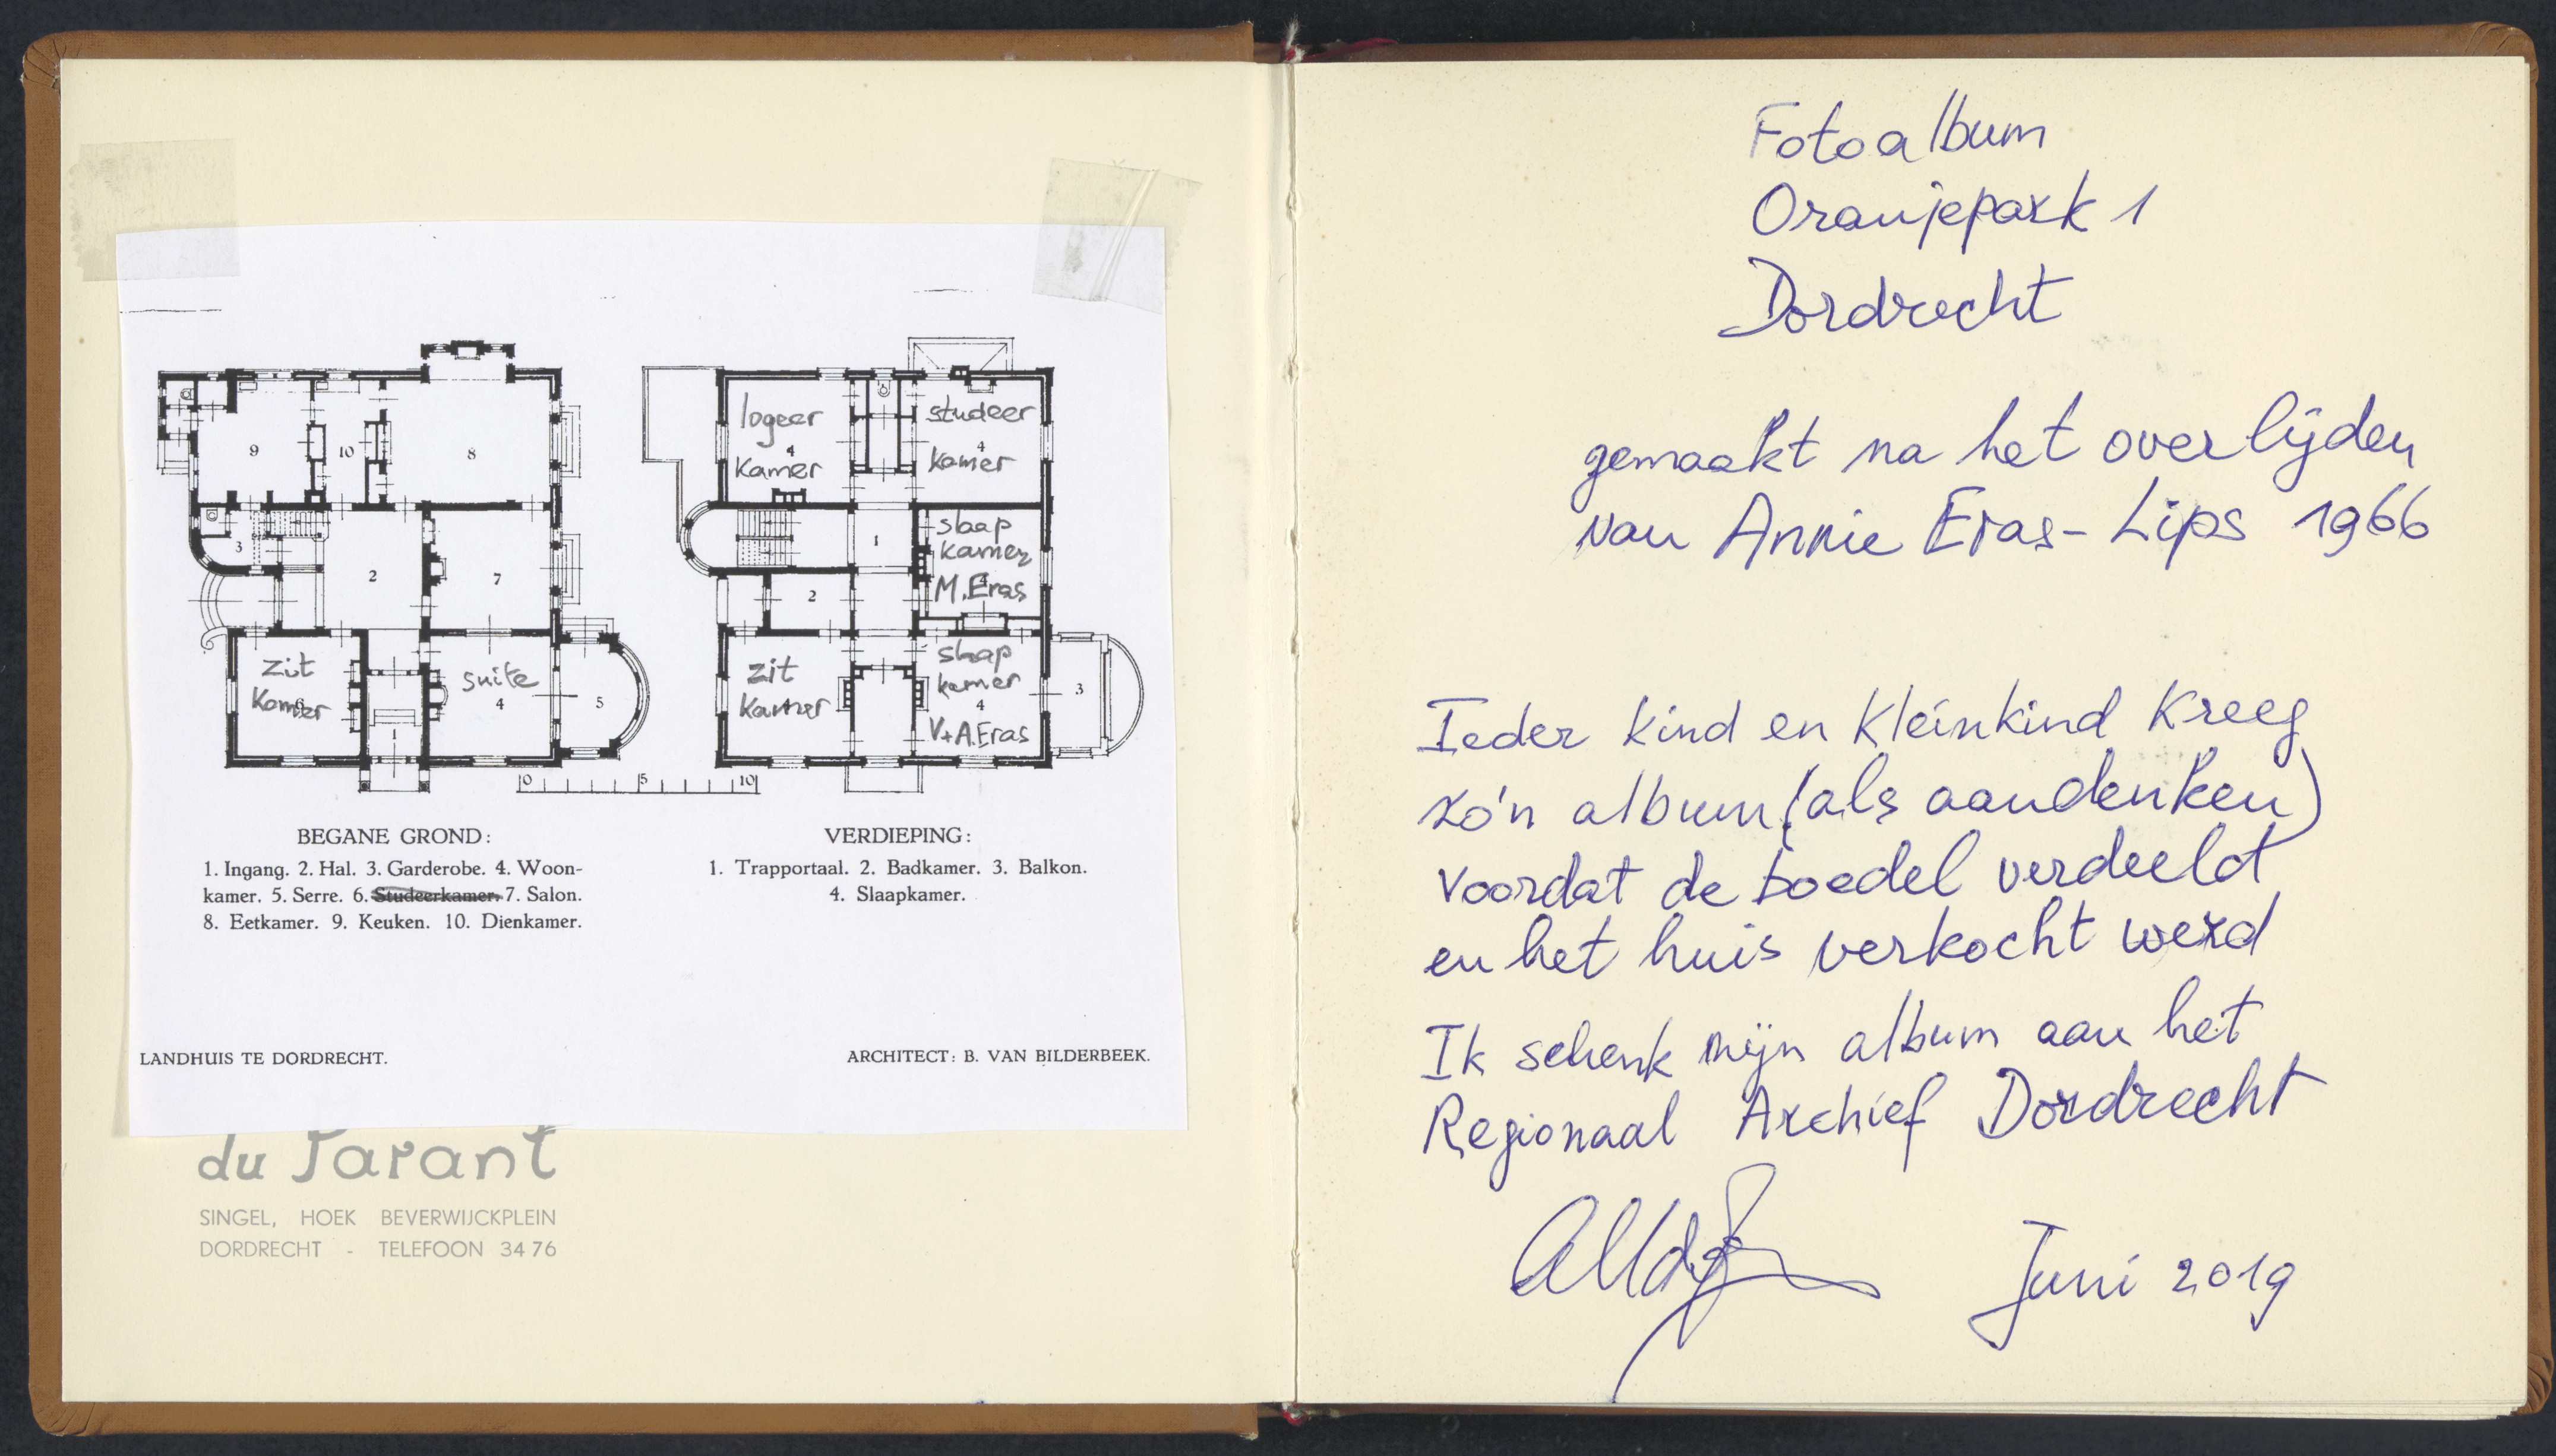 9
10
8
3
2
7
zit
kamer
6
suite
4
5
1
0 5 10
logeer
4
kamer
studeer
4
kamer
1
slaap
kamer
4
M. Eras
2
zit
kamer
slaap
kamer
4
V+A. Eras
3
BEGANE GROND:
1. Ingang. 2. Hal. 3. Garderobe. 4. Woon-
kamer. 5. Serre. 6. Studeerkamer. 7. Salon.
8. Eetkamer. 9. Keuken. 10. Dienkamer.
VERDIEPING:
1. Trapportaal. 2. Badkamer. 3. Balkon.
4. Slaapkamer.
LANDHUIS TE DORDRECHT.
ARCHITECT: B. VAN BILDERBEEK.
du Parant
SINGEL, HOEK BEVERWIJCKPLEIN
DORDRECHT - TELEFOON 3476
Fotoalbum
Oranjepark 1
Dordrecht
gemaakt na het overlijden
van Annie Eras-Lips 1966
Ieder kind en kleinkind kreeg
zo'n album (als aandenken)
voordat de boedel verdeeld
en het huis verkocht werd
Ik schenk mijn album aan het
Regionaal Archief Dordrecht
Juni 2019